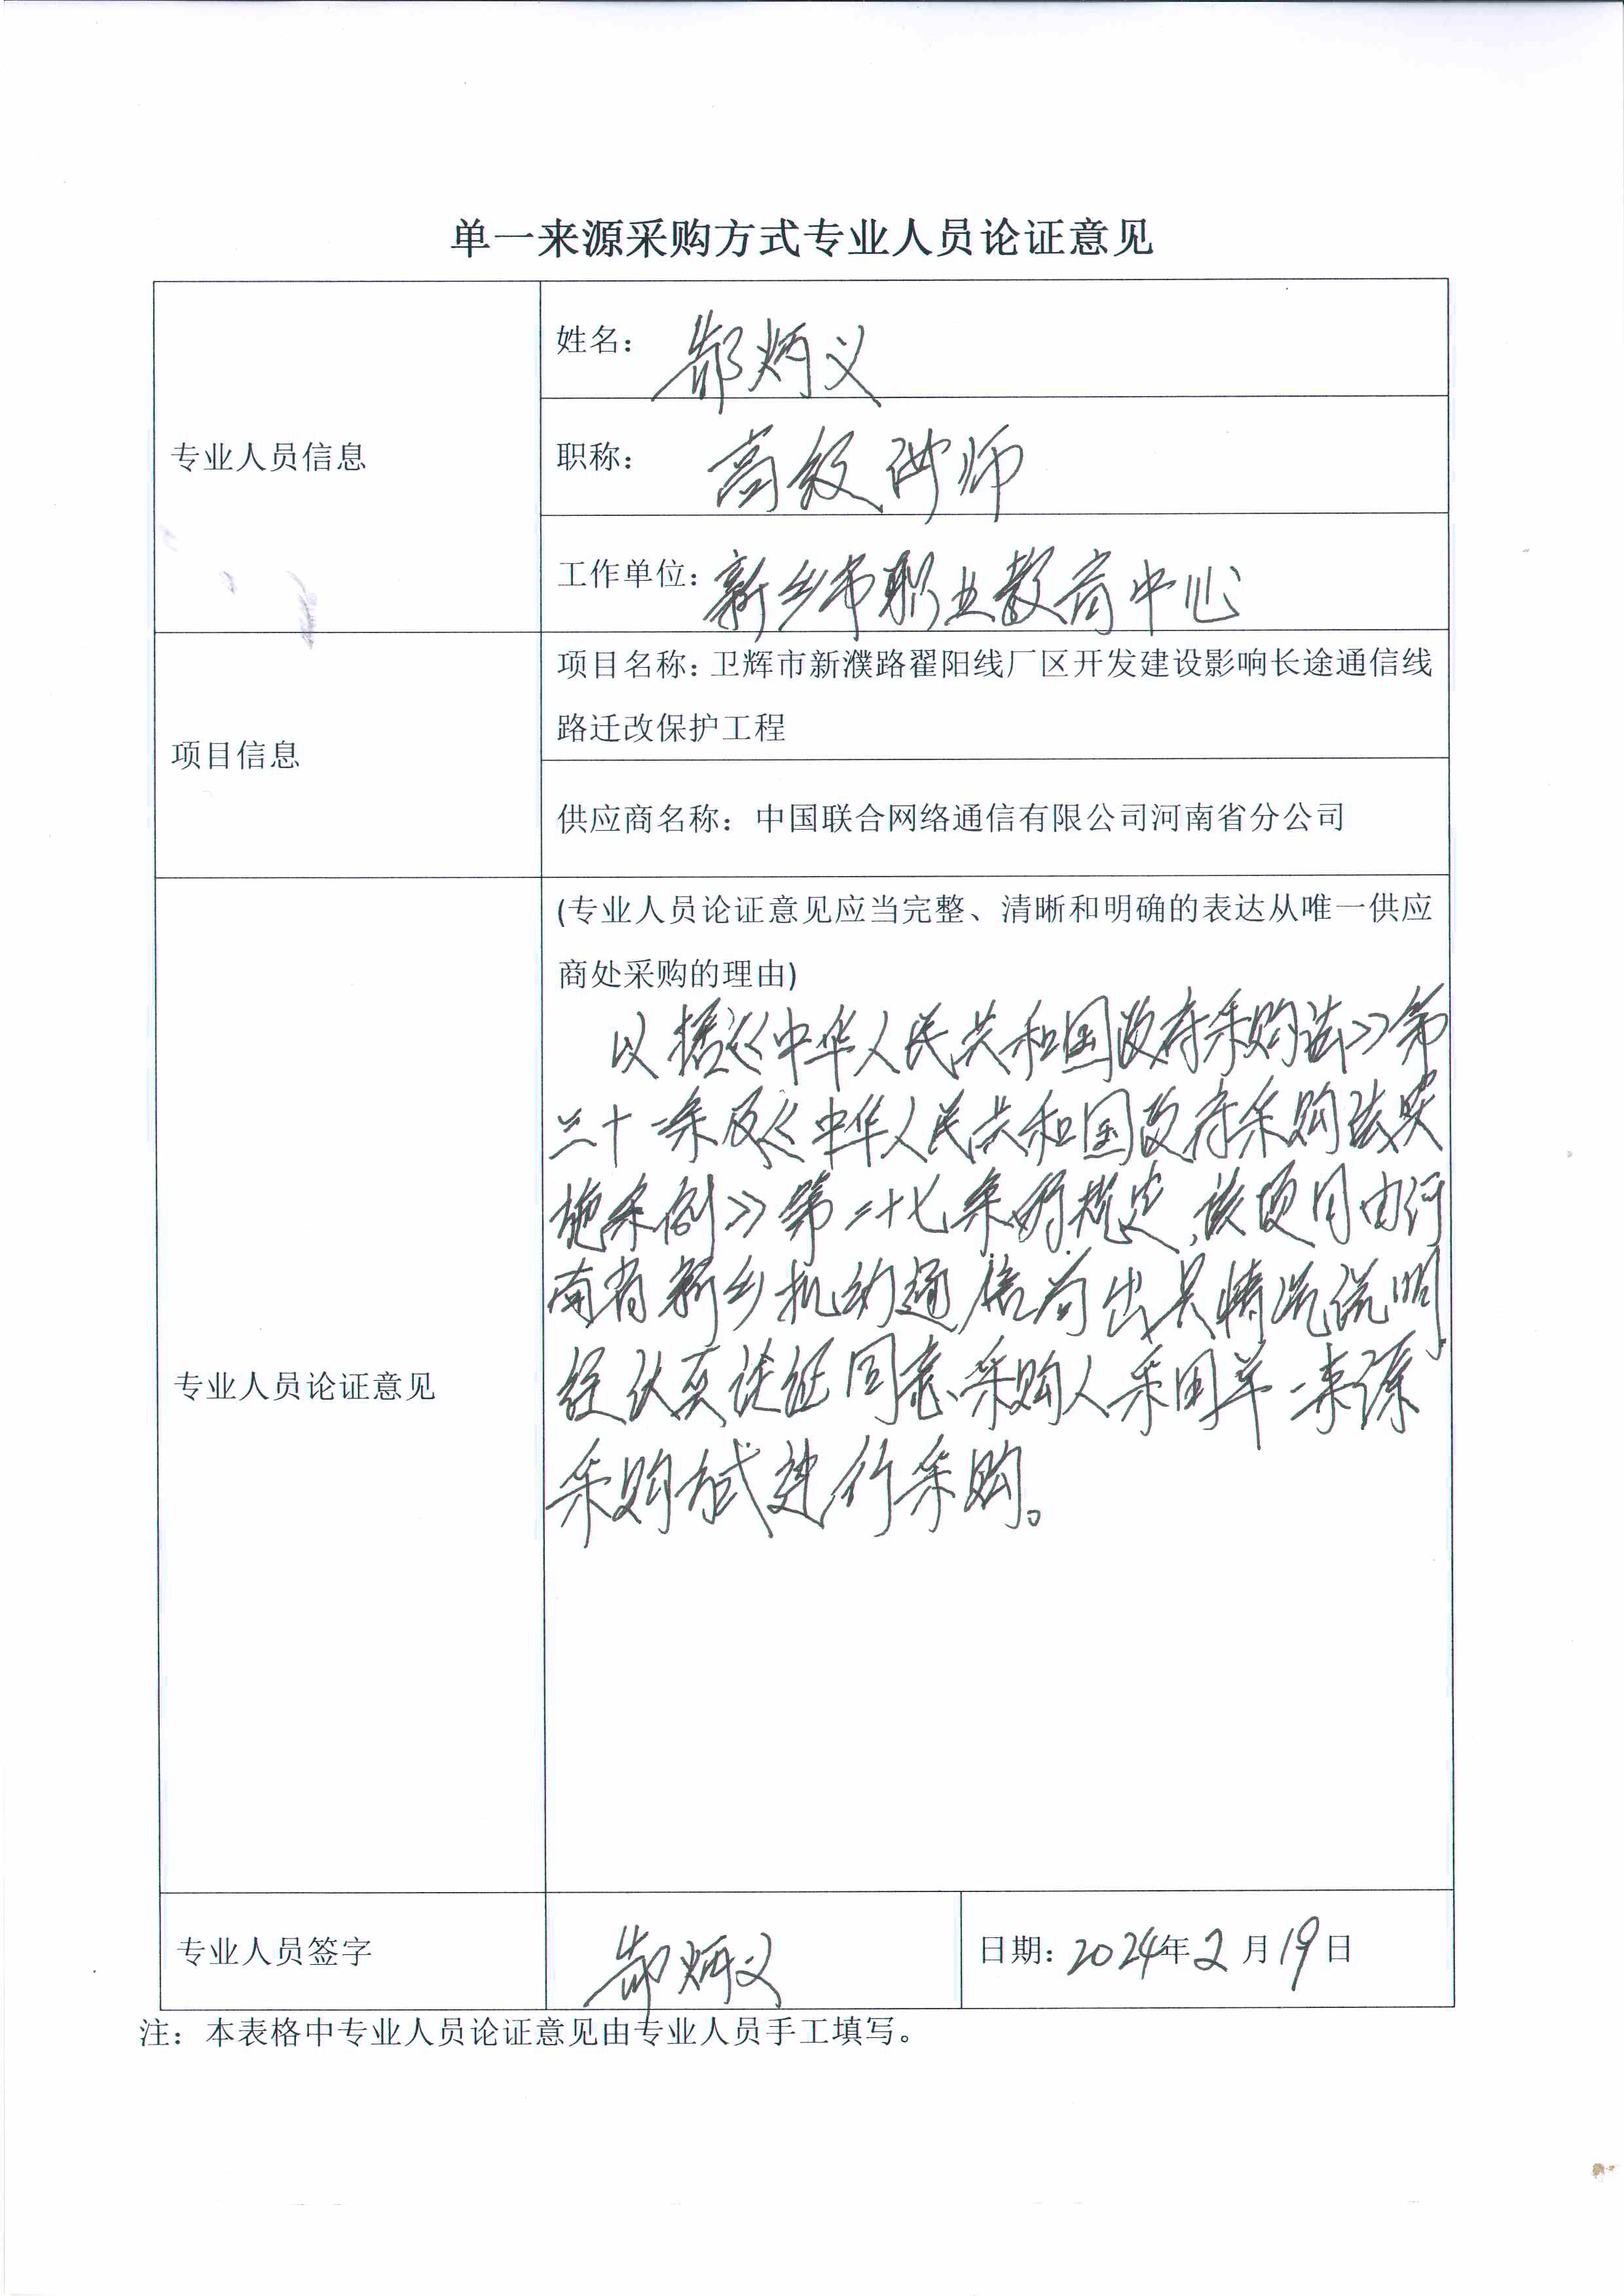 单一来源采购方式专业人员论证意见
专业人员信息
姓名：郜炳义
职称：高级讲师
工作单位：新乡市职业教育中心
项目信息
项目名称：卫辉市新濮路翟阳线厂区开发建设影响长途通信线
路迁改保护工程
供应商名称：中国联合网络通信有限公司河南省分公司
专业人员论证意见
(专业人员论证意见应当完整、清晰和明确的表达从唯一供应
商处采购的理由)
以据《中华人民共和国政府采购法》第
三十一条及《中华人民共和国政府采购法实
施条例》第二十七条的规定,该项目由河
南省新乡机动通信局出具情况说明
经认真论证同意采购人采用单一来源
采购方式进行采购。
专业人员签字
郜炳义
日期：2024年2月19日
注：本表格中专业人员论证意见由专业人员手工填写。